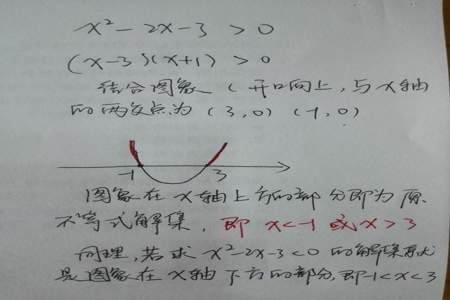 x²-2x-3>0
(x-3)(x+1)>0
结合图象(开口向上,与x轴
的两交点为(3,0)(-1,0)
-1 3
图象在x轴上方的部分即为原
不等式解集,即x<-1或x>3
同理,若求x²-2x-3<0的解集就
是图象在x轴下方的部分,即-1<x<3